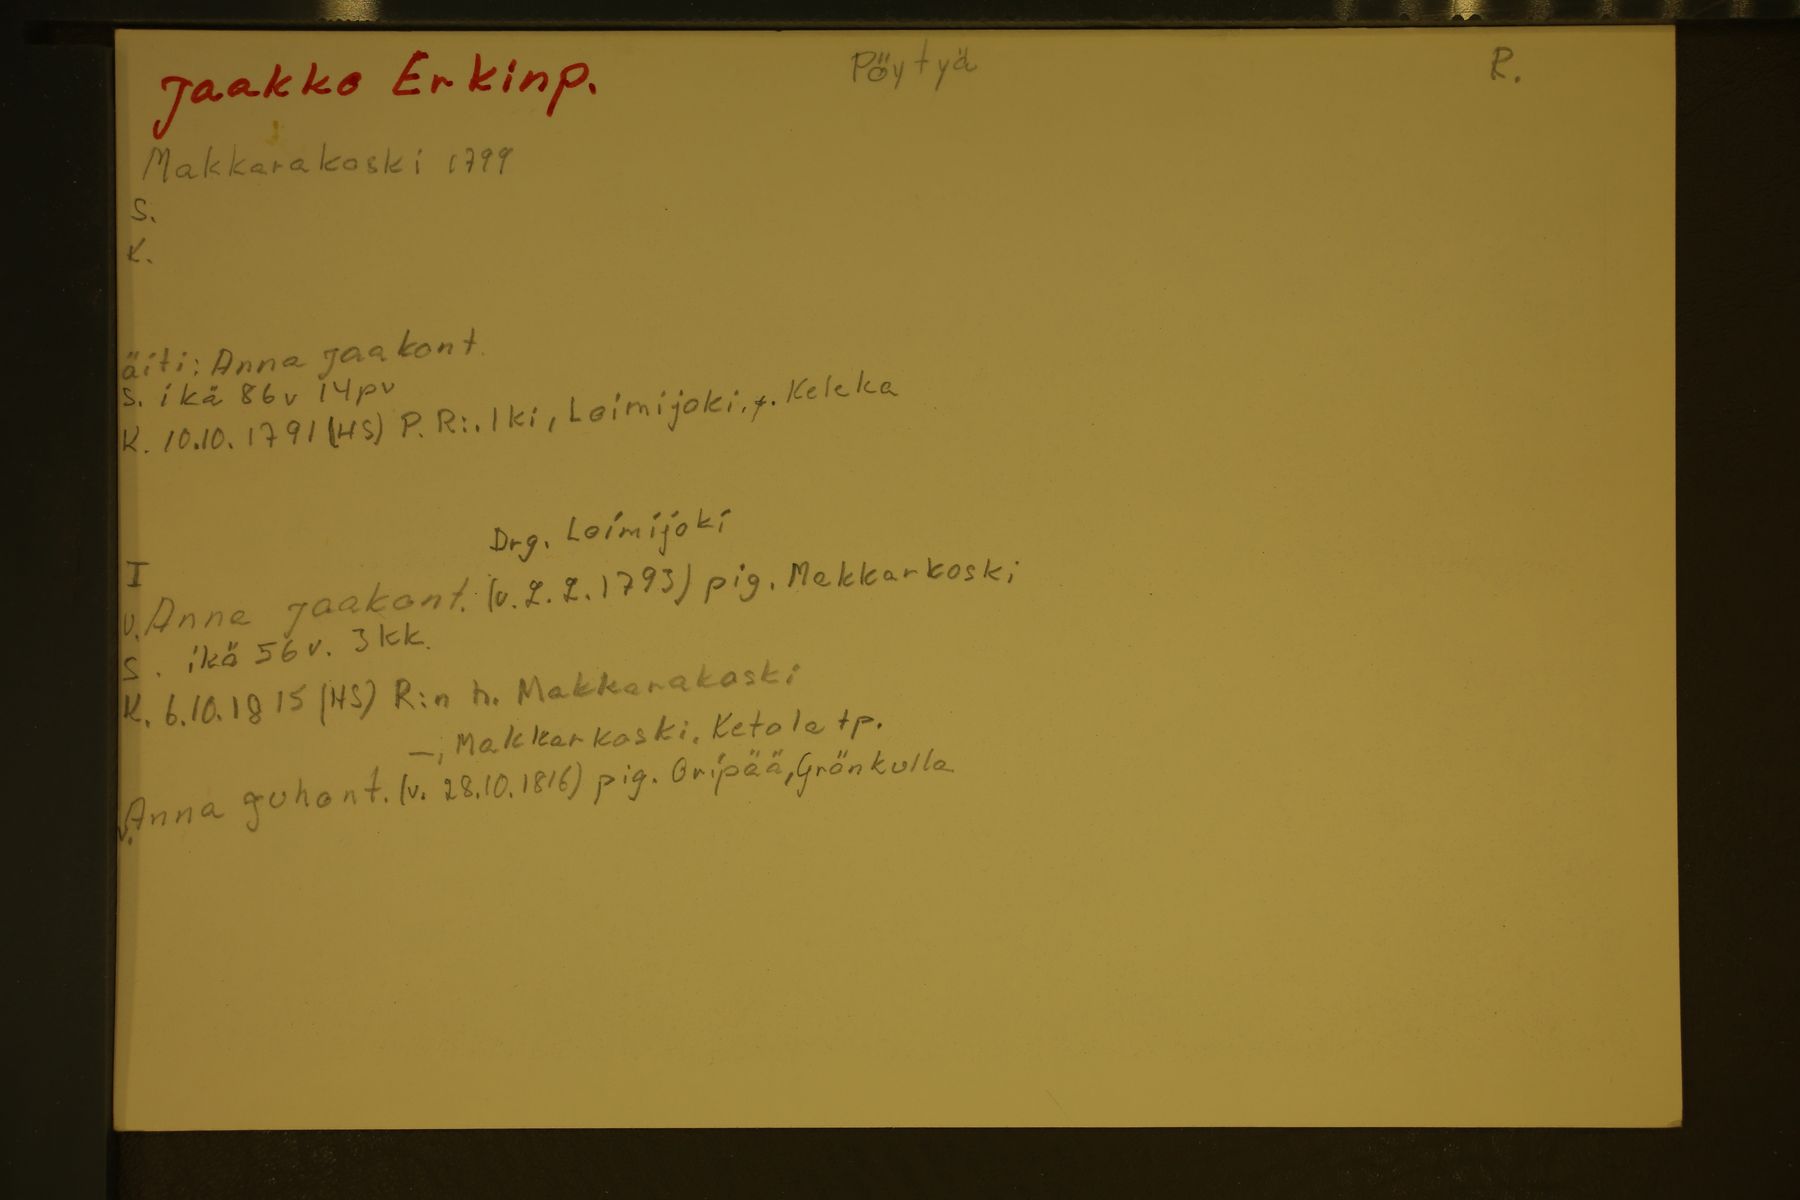 Jaakko Erkinp. Pöytyä R.
Makkarakoski 1799
S.
K.
äiti: Anna Jaakont.
S. ikä 86v 14pv
K. 10.10.1791 (HS) P. R:. Iki, Loimijoki, f. Keleka
Drg. Loimijoki
I
v. Anna Jaakont. (v. 2.2.1793) pig. Makkarkoski
S. ikä 56 v. 3 kk.
K. 6.10.1815 (HS) R:n h. Makkarakoski
—, Makkarkoski, Ketola tp.
v. Anna Juhont. (v. 28.10.1816) pig. Oripää, Grönkulla